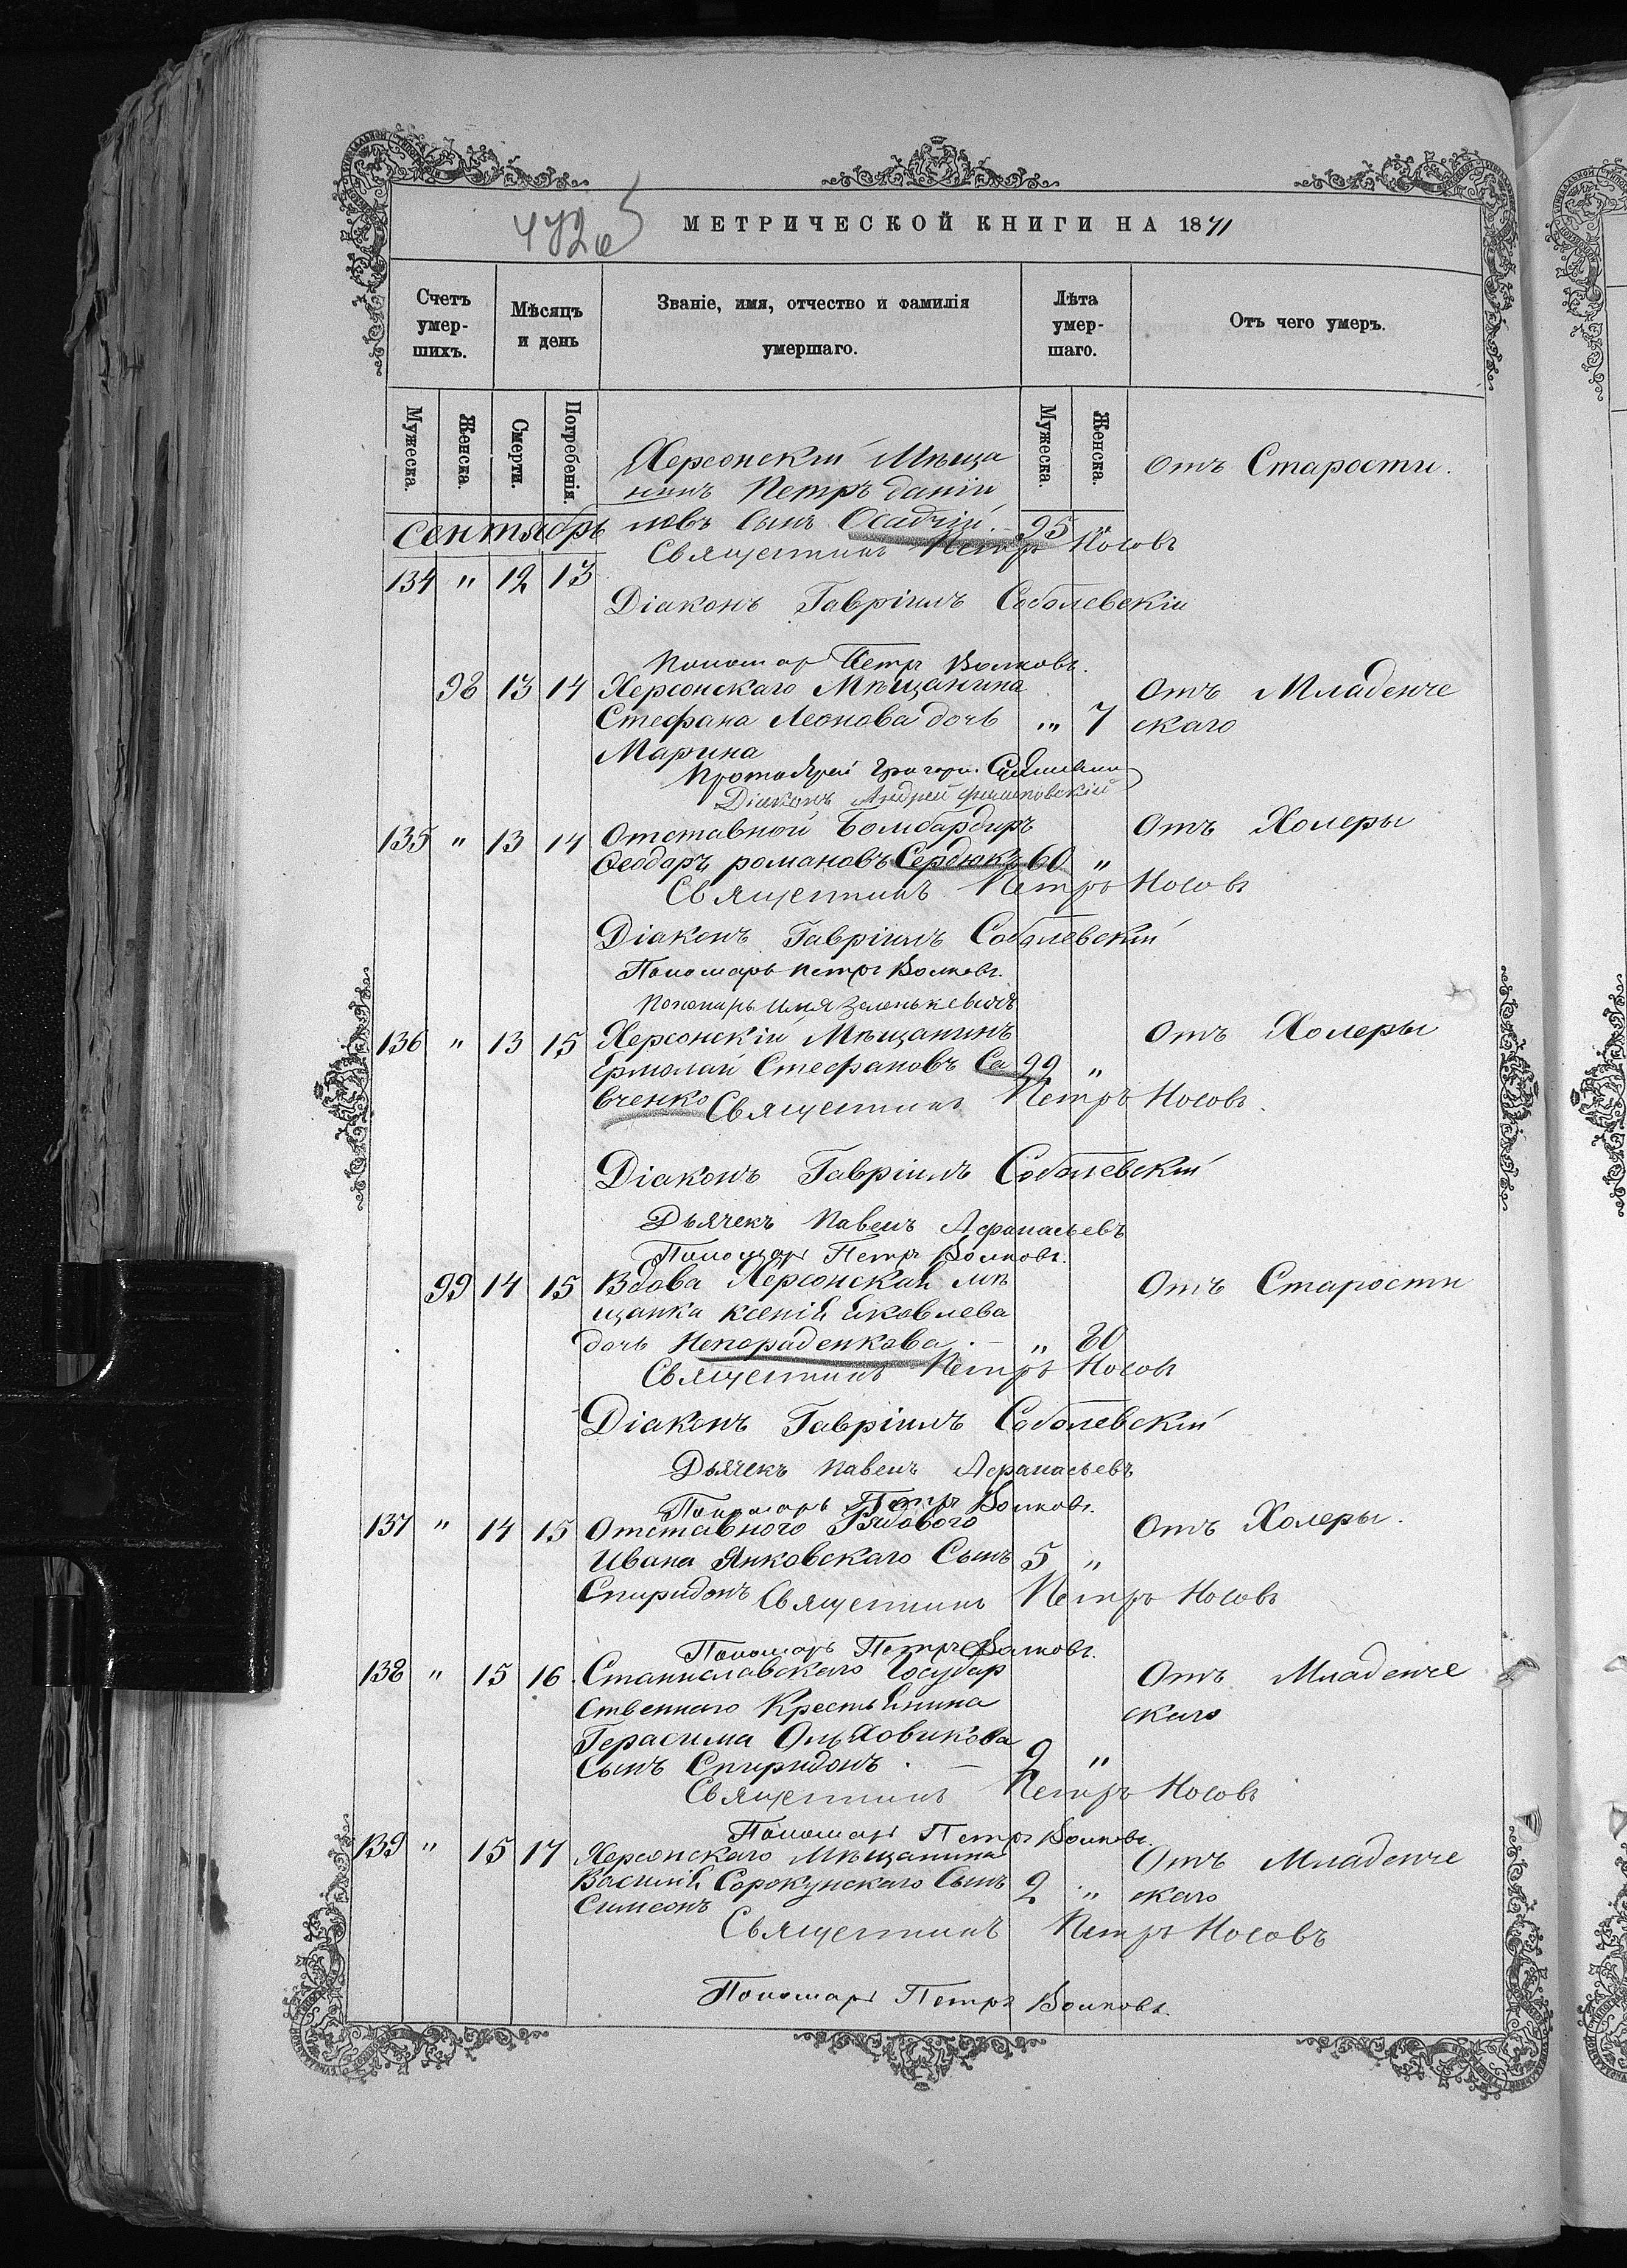 МЕТРИЧЕСКОЙ КНИГИ НА 1871
Счетъ умер-шихъ.
Мѣсяцъ и день
Званіе, имя, отчество и фамилія умершаго.
Лѣта умер-шаго.
Отъ чего умеръ.
Мужеска. Женска. Смерти. Погребенія. Мужеска. Женска.
Сентябрь
Херсонскій Мѣща
нинъ Петръ Даніи
ловъ Сынъ Осадчій. 95 "
отъ Старости.
Священникъ Петръ Носовъ
134 " 12 13
Діаконъ Гавріилъ Соболевскій
Пономарь Петръ Волковъ.
98 13 14 Херсонскаго Мѣщанина Отъ Младенче
Стефана Леонова дочь " 7 скаго
Марина
Діаконъ Андрей
135 " 13 14 Отставной Бомбардиръ Отъ Холеры
Ѳеодоръ романовъ Сердюкъ 60 "
Священникъ Петръ Носовъ
Діаконъ Гавріилъ Соболевскій
Пономарь Петръ Волковъ.
Пономарь Илія Зеленькевичъ
136 " 13 15 Херсонскій Мѣщанинъ Отъ Холеры
Ермолай Стефановъ Са 99 "
вченко Священникъ Петръ Носовъ.
Діаконъ Гавріилъ Соболевскій
Дьячекъ Павелъ Афанасьевъ
Пономарь Петръ Волковъ.
99 14 15 Вдова Херсонская мѣ Отъ Старости
щанка Ксенія Яковлева
дочь Непораденкова. — " 80
Священникъ Петръ Носовъ
Діаконъ Гавріилъ Соболевскій
Дьячекъ Павелъ Афанасьевъ
Пономарь Петръ Волковъ.
137 " 14 15 Отставного Рядового Отъ Холеры.
Ивана Янковскаго Сынъ 5 "
Спиридонъ Священникъ Петръ Носовъ
Пономарь Петръ Волковъ.
138 " 15 16 Станиславскаго Государ Отъ Младенче
ственнаго Крестьянина скаго
Герасима Ольховикова
Сынъ Спиридонъ. — 2 "
Священникъ Петръ Носовъ
Пономарь Петръ Волковъ.
139 " 15 17 Херсонскаго Мѣщанина Отъ Младенче
Василія Сорокунскаго Сынъ 2 " скаго
Симеонъ
Священникъ Петръ Носовъ
Пономарь Петръ Волковъ.